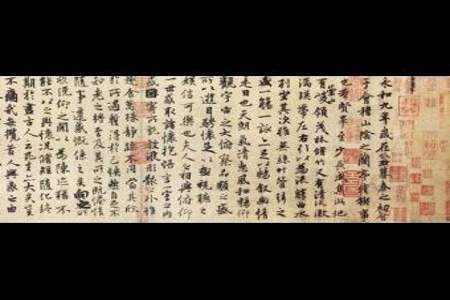 永和九年歲在癸丑暮春之初會
于會稽山陰之蘭亭脩禊事
也羣賢畢至少長咸集此地
有崇山峻領茂林脩竹又有清流激
湍暎帶左右引以為流觴曲水
列坐其次雖無絲竹管弦之
盛一觴一詠亦足以暢敘幽情
是日也天朗氣清惠風和暢仰
觀宇宙之大俯察品類之盛
所以遊目騁懷足以極視聽之
娛信可樂也夫人之相與俯仰
一世或取諸懷抱悟言一室之內
或因寄所託放浪形骸之外雖
趣舍萬殊靜躁不同當其欣
於所遇蹔得於己怏然自足不
知老之將至及其所之既惓情
隨事遷感慨係之矣向之所
欣俛仰之閒以為陳迹猶不
能不以之興懷況脩短隨化終
期於盡古人云死生亦大矣豈
不痛哉每攬昔人興感之由